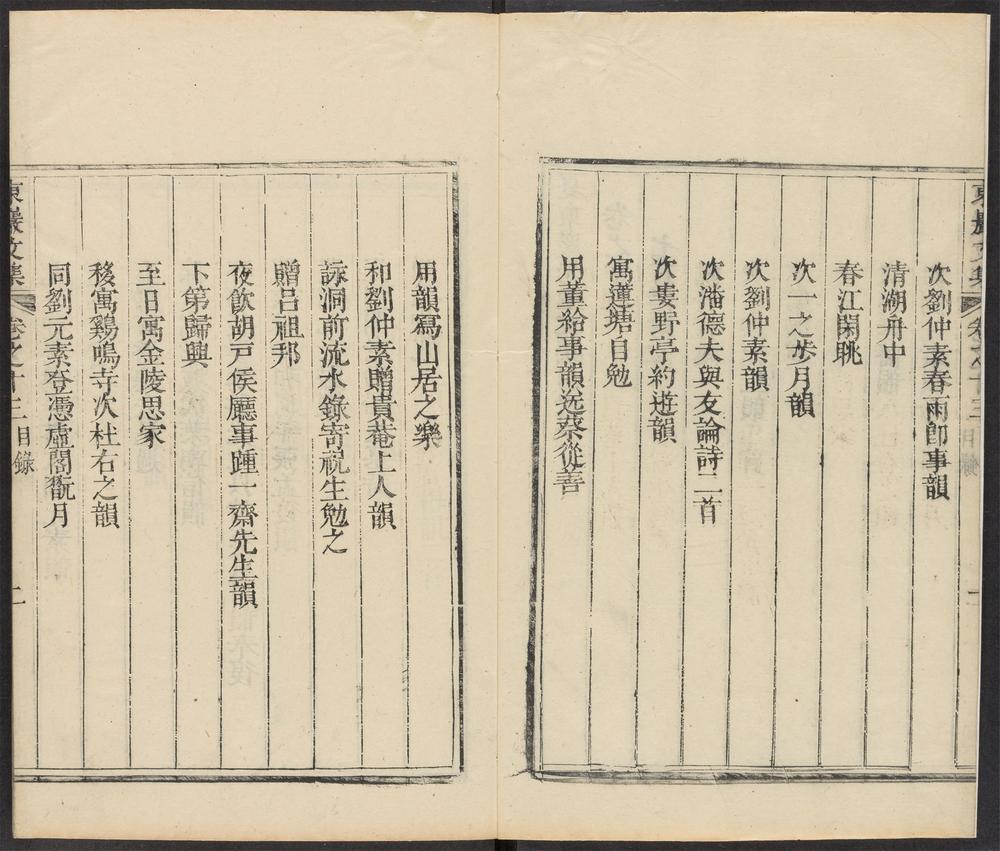 東巖文集 卷之十三 目錄
次劉仲素春雨卽事韻
清湖舟中
春江閑眺
次一之步月韻
次劉仲素韻
次潘德夫與友論詩二首
次婁野亭約遊韻
寓蓮塘自勉
用董給事韻送蔡從善
用韻寫山居之樂
和劉仲素贈貴菴上人韻
詠洞前流水錄寄祝生勉之
贈呂祖邦
夜飲胡戸侯廳事踵一齋先生韻
下第歸興
至日寓金陵思家
移寓鷄鳴寺次杜右之韻
同劉元素登憑虛閣翫月
東巖文集 卷之十三 目錄 二